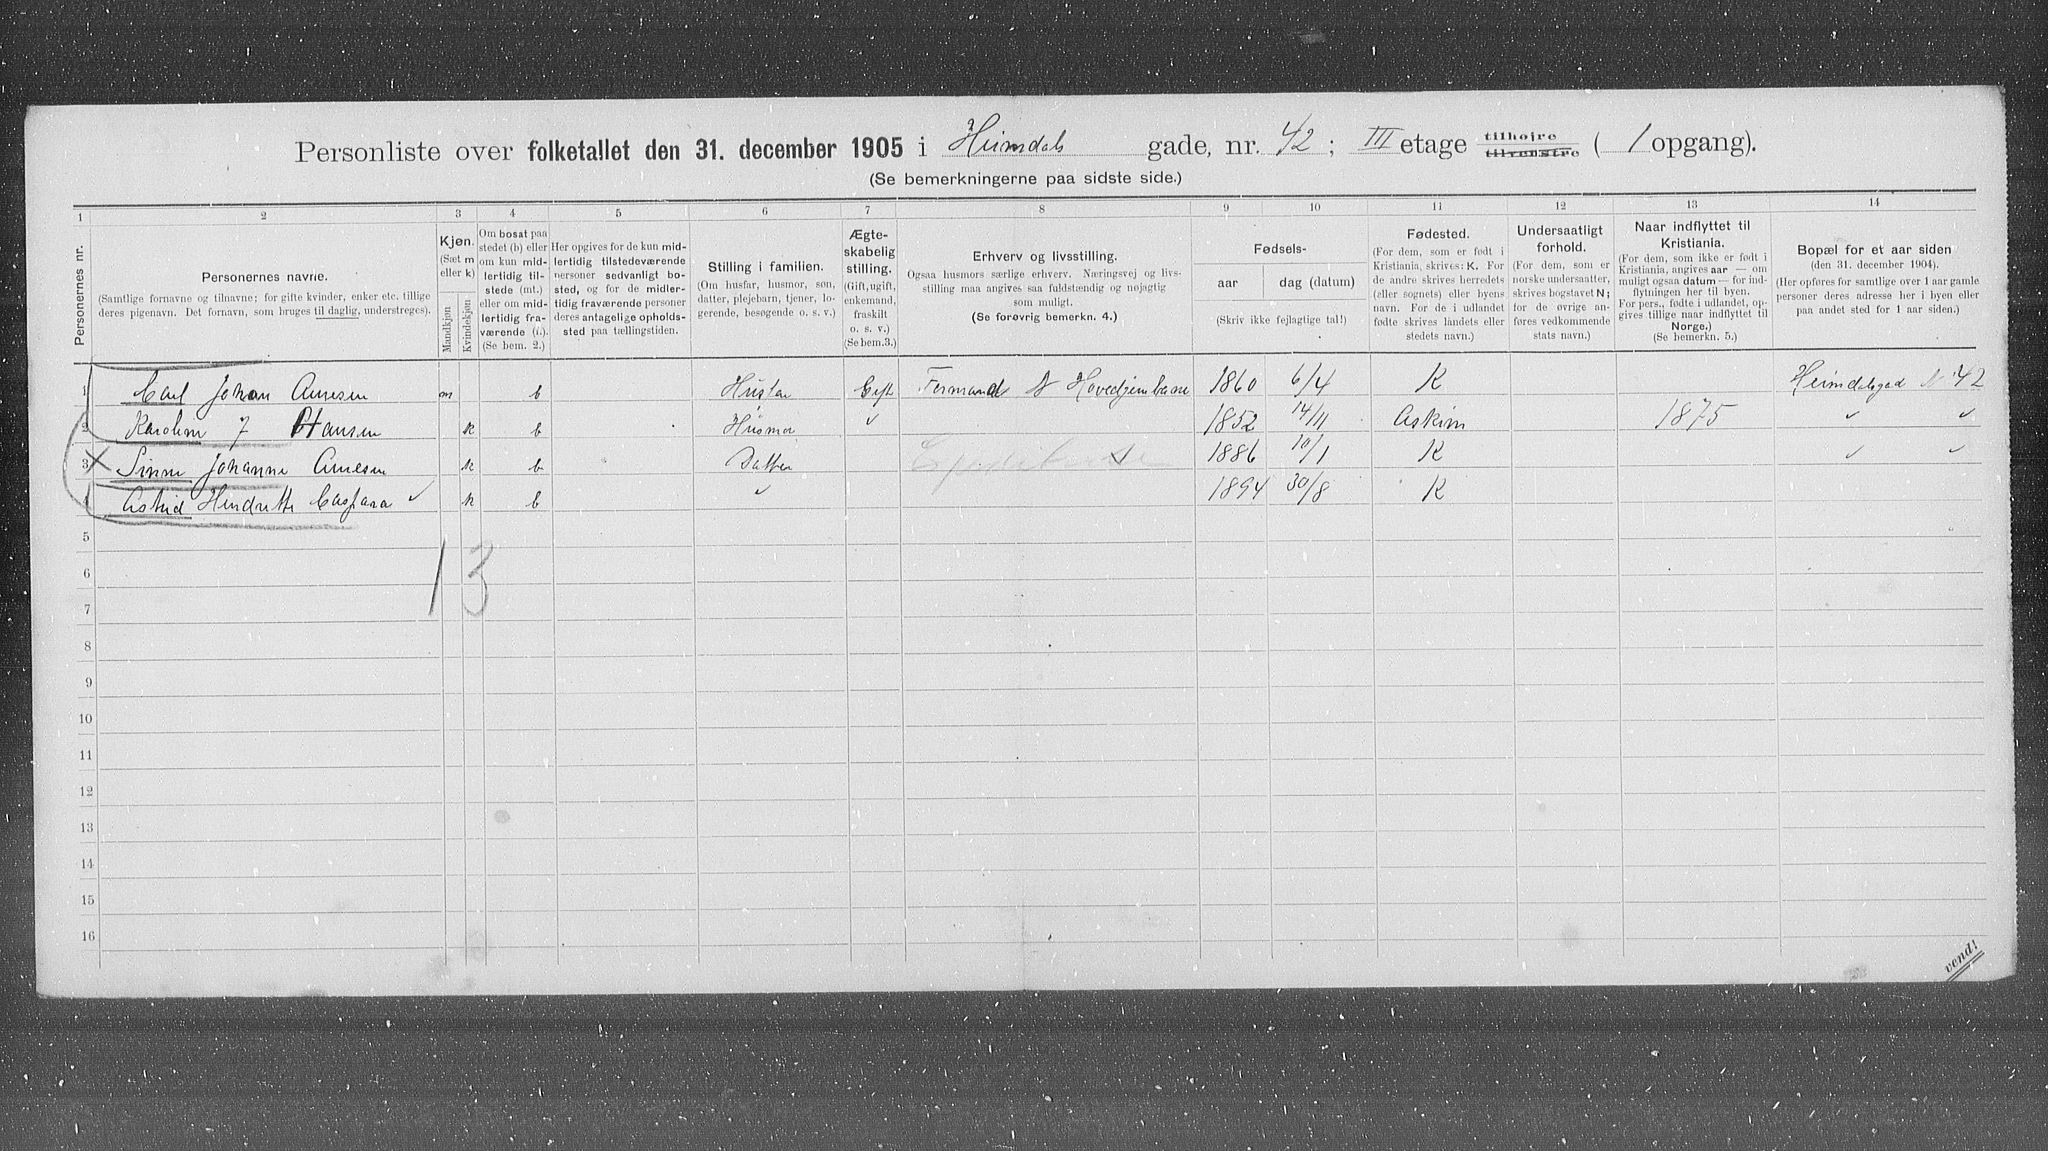 Personliste over folketallet den 31. december 1905 i Heimdals gade, nr. 42; III etage tilhøjre tilvenstre ( 1 opgang).
(Se bemerkningerne paa sidste side.)
1 2 3 4 5 6 7 8 9 10 11 12 13 14
Personernes nr.
Personernes navne.
(Samtlige fornavne og tilnavne; for gifte kvinder, enker etc. tillige
deres pigenavn. Det fornavn, som bruges til daglig, understreges).
Kjøn.
(Sæt m
eller k)
Mandkjøn
Kvindekjøn
Om bosat paa
stedet (b) eller
om kun mid-
lertidig til-
stede (mt.)
eller om mid-
lertidig fra-
værende (f.).
(Se bem. 2.)
Her opgives for de kun mid-
lertidig tilstedeværende
personer sedvanligt bo-
sted, og for de midler-
tidig fraværende personer
deres antagelige opholds-
sted paa tællingstiden.
Stilling i familien.
(Om husfar, husmor, søn,
datter, plejebarn, tjener, lo-
gerende, besøgende o. s. v.)
Ægte-
skabelig
stilling.
(Gift, ugift,
enkemand,
fraskilt
o. s. v.)
(Se bem.3.)
Erhverv og livsstilling.
Ogsaa husmors særlige erhverv. Næringsvej og livs-
stilling maa angives saa fuldstændig og nøjagtig
som muligt.
(Se forøvrig bemerkn. 4.)
Fødsels-
aar
dag (datum)
(Skriv ikke fejlagtige tal!)
Fødested.
(For dem, som er født i
Kristiania, skrives: K. For
de andre skrives herredets
(eller sognets) eller byens
navn. For de i udlandet
fødte skrives landets eller
stedets navn.)
Undersaatligt
forhold.
(For dem, som er
norske undersaatter,
skrives bogstavet N;
for de øvrige an-
føres vedkommende
stats navn.)
Naar indflyttet til
Kristiania.
(For dem, som ikke er født i
Kristiania, angives aar — om
muligt ogsaa datum — for ind-
flytningen her til byen.
For pers., fødte i udlandet, op-
gives tillige naar indflyttet til
Norge.)
(Se bemerkn. 5.)
Bopæl for et aar siden
(den 31. december 1904).
(Her opføres for samtlige over 1 aar gamle
personer deres adresse her i byen eller
paa andet sted for 1 aar siden.)
1 Carl Johan Arnesen m b Husfar Gift Formand Hovedjernbane 1860 6/4 K Heimdalsgad N 42
2 Karolin J Hansen k b Husmor ✓ 1852 14/11 Askim 1875 ✓ ✓
3 Johanne Arnesen k b Datter 1886 10/1 K ✓ ✓
4 Astrid Hendrette Caspara ✓ k b ✓ 1894 30/8 K
5
1 3
6
7
8
9
10
11
12
13
14
15
16
vend!